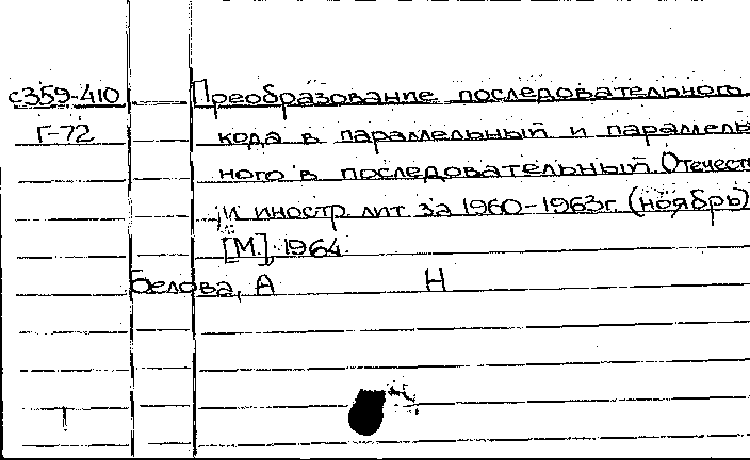 с359-410 Преобразование последовательного
Г-72 кода в параллельный и параллель
ного в последовательный. Отечест
и иностр. лит. за 1960-1963г. (ноябрь)
[М.], 1964.
Белова, А Н